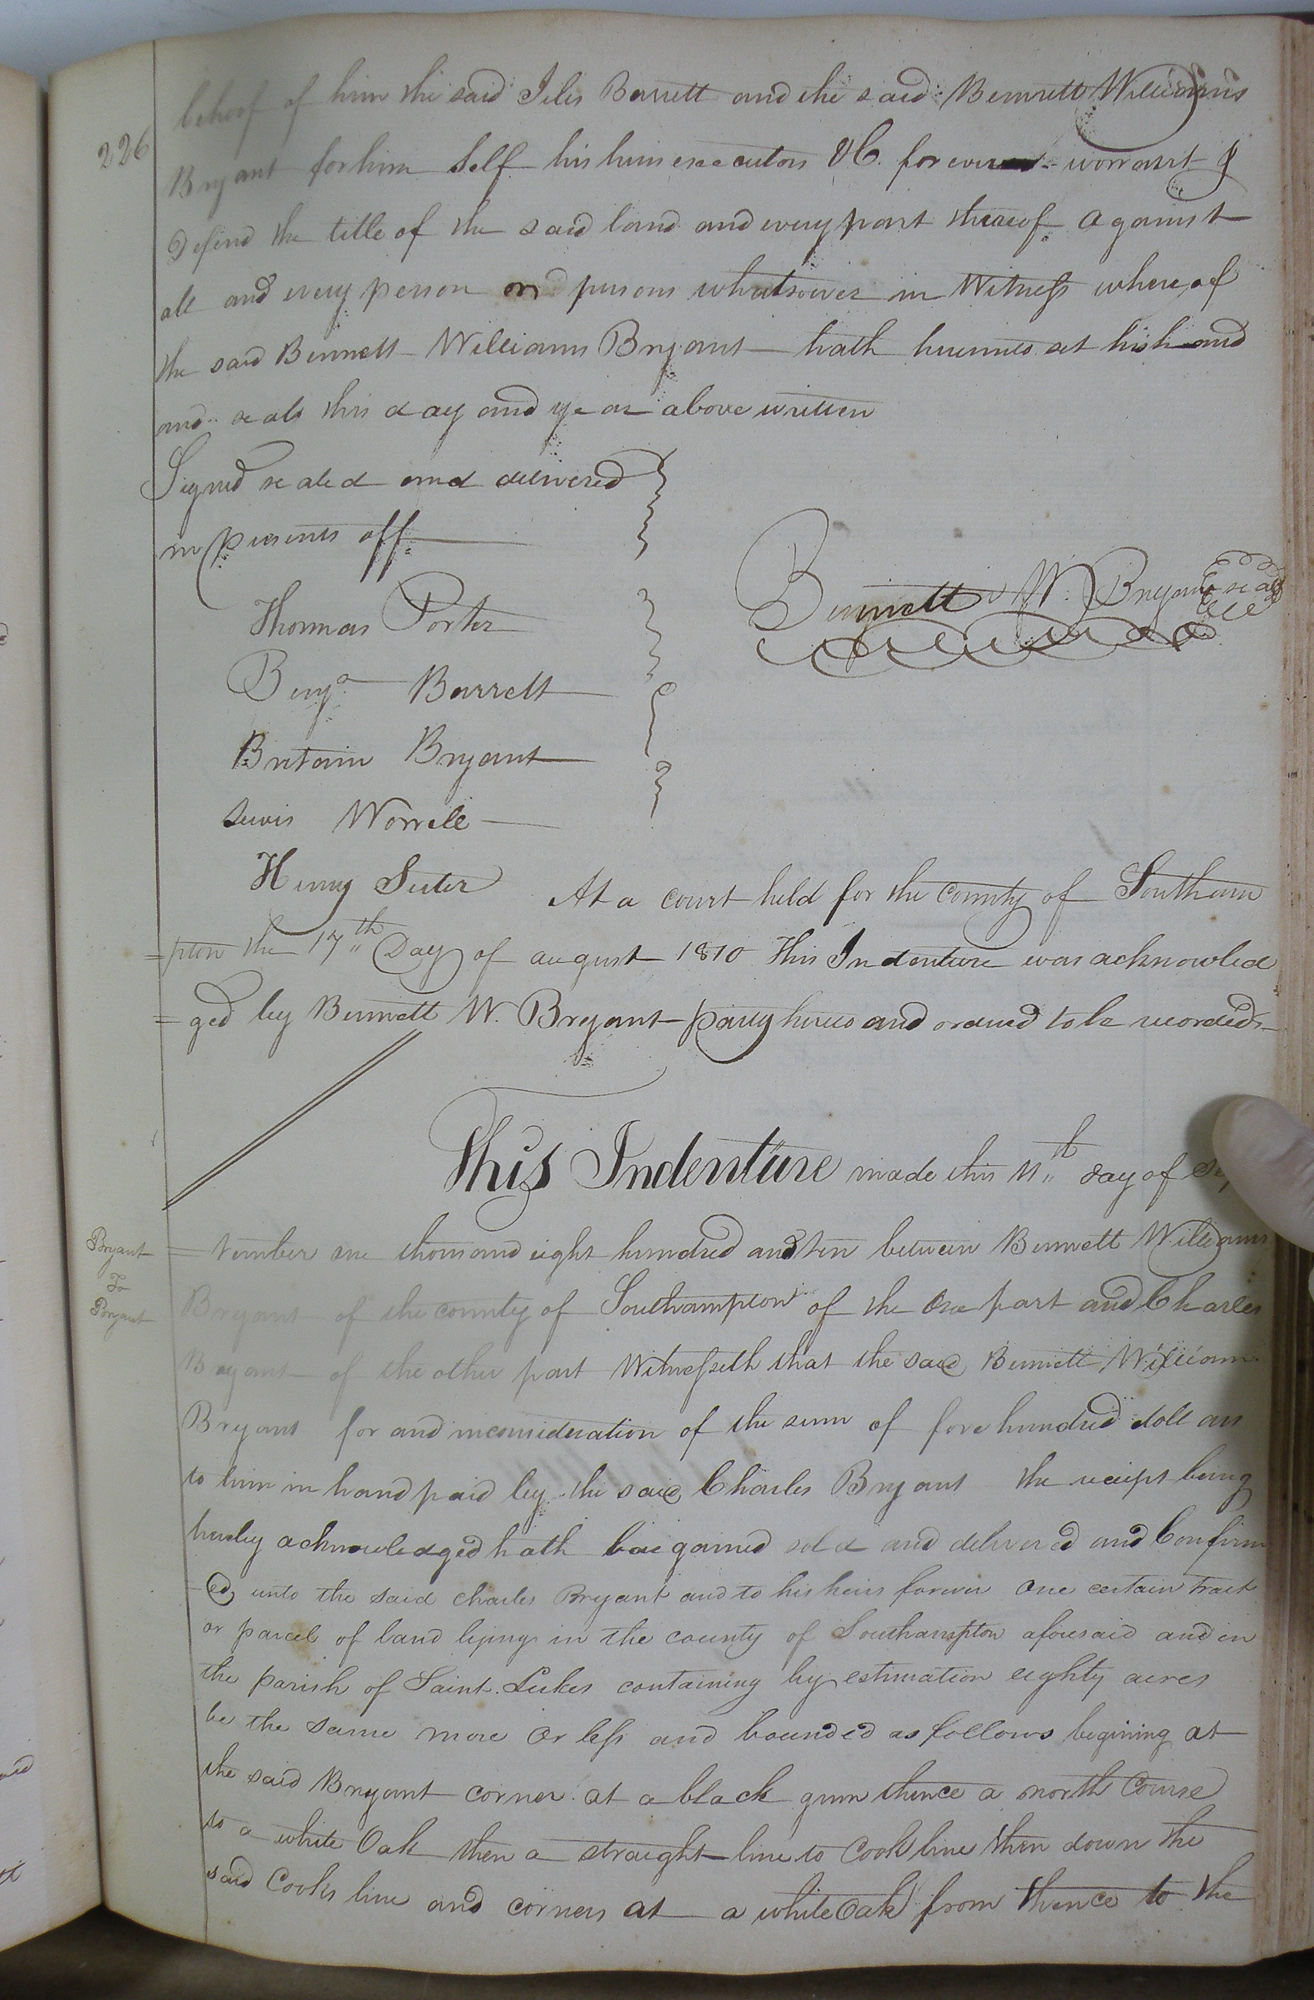 behoof of him the said Jiles Barrett and the said Bennett Williams
226
Bryant for him Self his heirs executors &C. forever worrant &
Defend the title of the said land and every part thereof against
all and every person or persons whatsoever in Witness where of
the said Bennett Williams Bryant hath hereunto set his hand
and seals this day and year above written
Signed sealed and delivered
in presents off
Bennett W. Bryant seal
Thomas Porter
Benja Barrett
Britain Bryant
Lewis Worrell
Henry Suter
At a court held for the county of Southam
=pton the 17th Day of august 1810 This Indenture was acknowled
=ged by Bennett W. Bryant party hereto and ordered to be recorded
This Indenture made this 11th day of Sep
Bryant
To
Bryant
=tember one thousand eight hundred and ten between Bennett Williams
Bryant of the county of Southampton of the One part and Charles
Bryant of the other part Witnesseth that the said Bennett William
Bryant for and inconsideration of the sum of fore hundred dollars
to him in hand paid by the said Charles Bryant the receipt being
hereby acknowledged hath bargained sold and delivered and Confirm
ed unto the said Charles Bryant and to his heirs forever One certain tract
or parcel of land lying in the county of Southampton aforesaid and in
the parish of Saint Lukes containing by estimation eighty acres
be the same more Or less and bounded as follows begining at
the said Bryant corner at a black gum thence a north Course
to a white Oak then a straight line to Cooks line then down the
said Cooks line and corners at a white Oak from thence to the